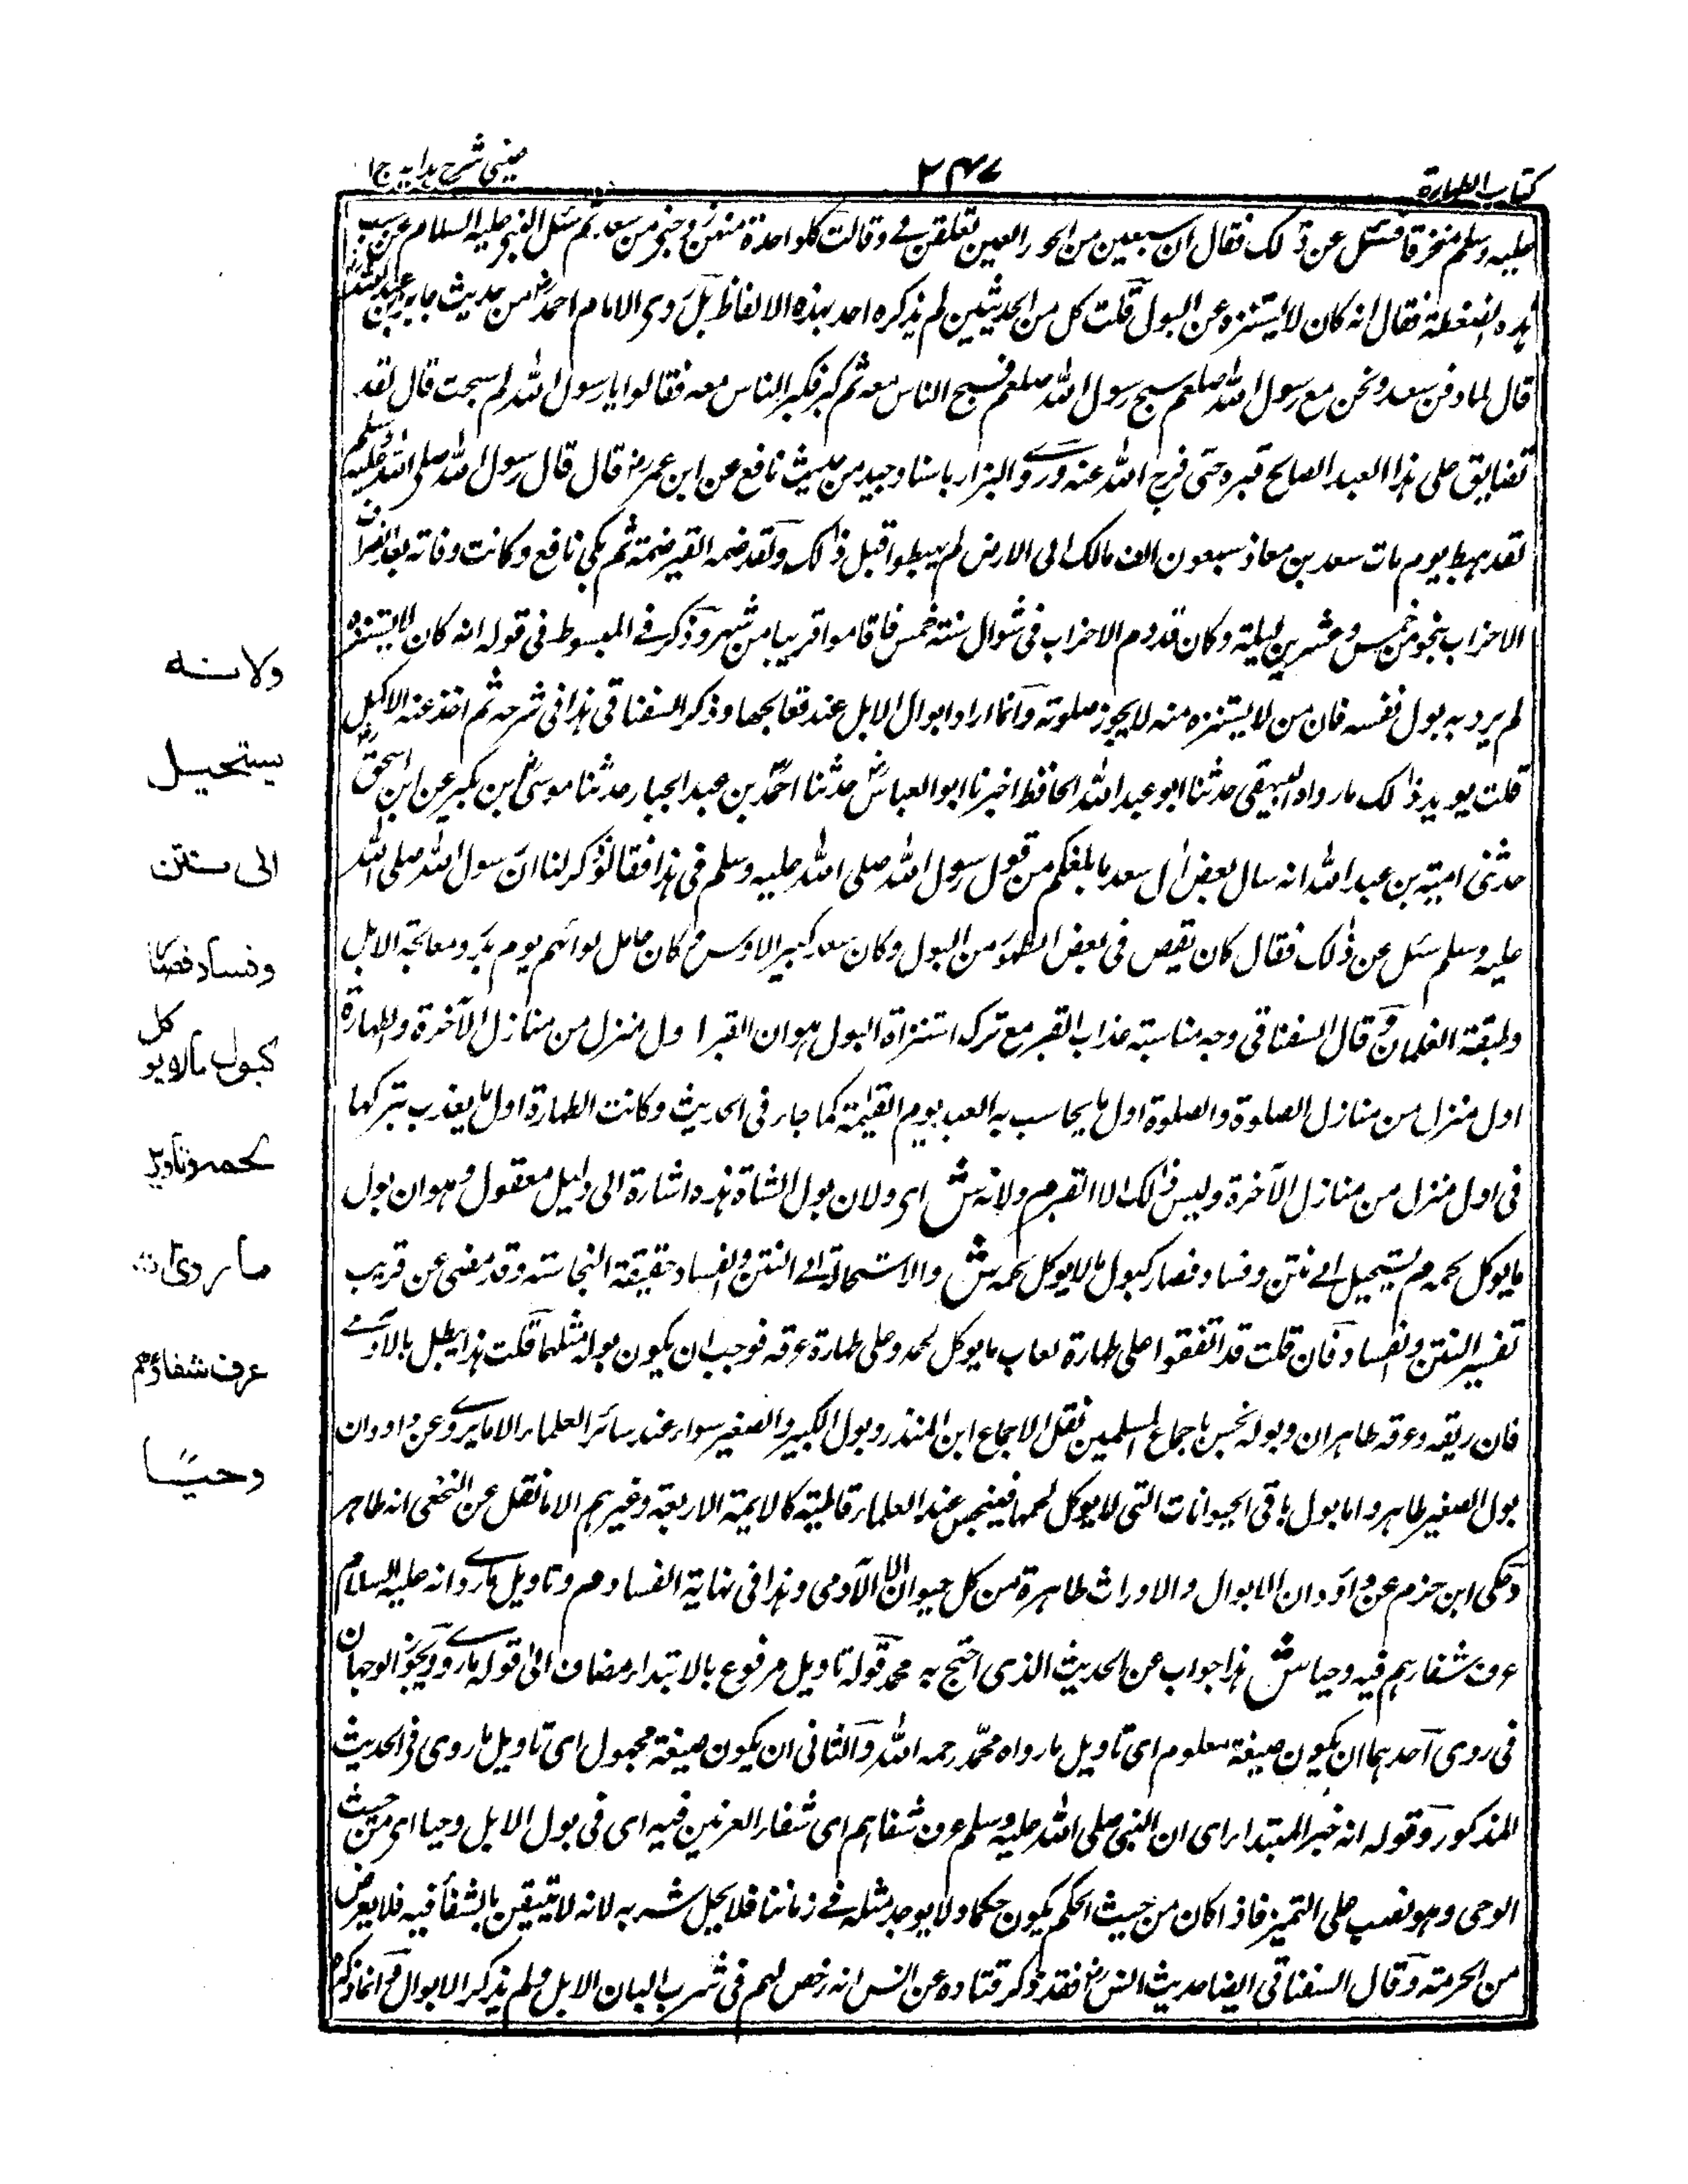 كتاب الطهارة
٢٤٧
عينى شرح هدايه ج١
عليه وسلم منخرقا فسئل عن ذلك فقال ان سبعين من الحور العين تعلقن بي وقالت كل واحدة منهن زوجني من سعد ثم سئل النبي عليه السلام عن سبب
هذه الضغطة فقال انه كان لا يستنزه عن البول قلت كل من الحديثين لم يذكره احد بهذه الالفاظ بل روى الامام احمد من حديث جابر بن عبد الله
قال لما دفن سعد ونحن مع رسول الله صلعم سبح رسول الله صلعم فسبح الناس معه ثم كبر فكبر الناس معه فقالوا يا رسول الله لم سبحت قال لقد
تضايق على هذا العبد الصالح قبره حتى فرج الله عنه وروى البزار باسناد جيد من حديث نافع عن ابن عمر رض قال قال رسول الله صلى الله عليه وسلم
لقد هبط يوم مات سعد بن معاذ سبعون الف مالك الى الارض لم يهبطوا قبل ذلك ولقد ضمه القبر ضمة ثم بكى نافع وكانت وفاته بعد انصراف
الاحزاب بنحو من خمس وعشرين ليلة وكان قدوم الاحزاب فى شوال سنة خمس فاقاموا قريبا من شهر وذكر في المبسوط فى قوله انه كان لا يستنزه
لم يرد به بول نفسه فان من لا يستنزه منه لا يجوز صلوته وانما اراد ابوال الابل عند معالجتها وذكر السغناقى هذا فى شرحه ثم اخذ عنه الاكمل
قلت يويد ذلك ما رواه البيهقى حدثنا ابو عبد الله الحافظ اخبرنا ابو العباس حدثنا احمد بن عبد الجبار حدثنا موسى بن بكير عن ابن اسحق
حدثنى امية بن عبد الله انه سال بعض ال سعد ما بلغكم من قول رسول الله صلى الله عليه وسلم فى هذا فقالوا ذكر لنا ان رسول الله صلى الله
عليه وسلم سئل عن ذلك فقال كان يقصر فى بعض الطهور من البول وكان سعد كبير الاوس كان حامل لوائهم يوم بدر ومعالجة الابل
وظيفة الغلمان وقال السغناقى وجه مناسبة عذاب القبر مع ترك استنزاه البول هو ان القبر اول منزل من منازل الآخرة والطهارة
اول منزل من منازل الصلوة والصلوة اول ما يحاسب به العبد يوم القيمة كما جاء فى الحديث وكانت الطهارة اول ما يعذب بتركها
فى اول منزل من منازل الآخرة وليس ذلك الا القبر م ولانه ش اى ولان بول الشاة هذه اشارة الى دليل معقول وهو ان بول
ما يوكل لحمه م يستحيل الى نتن وفساد فصار كبول ما لا يوكل لحمه ش والاستحالة الى النتن والفساد حقيقة النجاسة وقد مضى عن قريب
تفسير النتن والفساد فان قلت قد اتفقوا على طهارة لعاب ما يوكل لحمه وعلى طهارة عرقه فوجب ان يكون بوله مثلهما قلت هذا يبطل بالآدمي
فان ريقه وعرقه طاهران وبوله نجس باجماع المسلمين نقل الاجماع ابن المنذر وبول الكبير والصغير سواء عند سائر العلماء الا ما يروى عن داود ان
بول الصغير طاهر واما بول باقى الحيوانات التى لا يوكل لحمها فينجس عند العلماء قاطبة كالايمة الاربعة وغيرهم الا ما نقل عن النخعى انه طاهر
وحكى ابن حزم عن داود ان الابوال والاوراث طاهرة من كل حيوان الا الآدمى وهذا فى نهاية الفساد م وتاويل ما روى انه عليه السلام
عرف شفاءهم فيه وحيا ش هذا جواب عن الحديث الذى احتج به محمد قوله تاويل مرفوع بالابتداء مضاف الى قوله ما روى ويجوز الوجهان
فى روى احدهما ان يكون صيغة معلوم اى تاويل ما رواه محمد رحمه الله والثانى ان يكون صيغة مجهول اى تاويل ما روى فى الحديث
المذكور وقوله انه خبر المبتداء اى ان النبى صلى الله عليه وسلم عرف شفاهم اى شفاء العرنيين فيه اى فى بول الابل وحيا اى من حيث
الوحى وهو نصب على التميز فاذا كان من حيث الحكم يكون حكما ولا يوجد مثله في زماننا فلا يحل شربه لانه لا يتيقن بالشفأ فيه فلا يعرض
من الحرمة وقال السغناقى ايضا حديث انس رض فقد ذكر قتاده عن انس انه رخص لهم فى شرب البان الابل ولم يذكر الابوال وانما ذكره
ولانــه
يستحيــل
الى نــتن
وفساد فصار
كبول مالا يوكل
لحمه وتاويل
ما روى انه
عرف شفاؤهم
وحيًــا